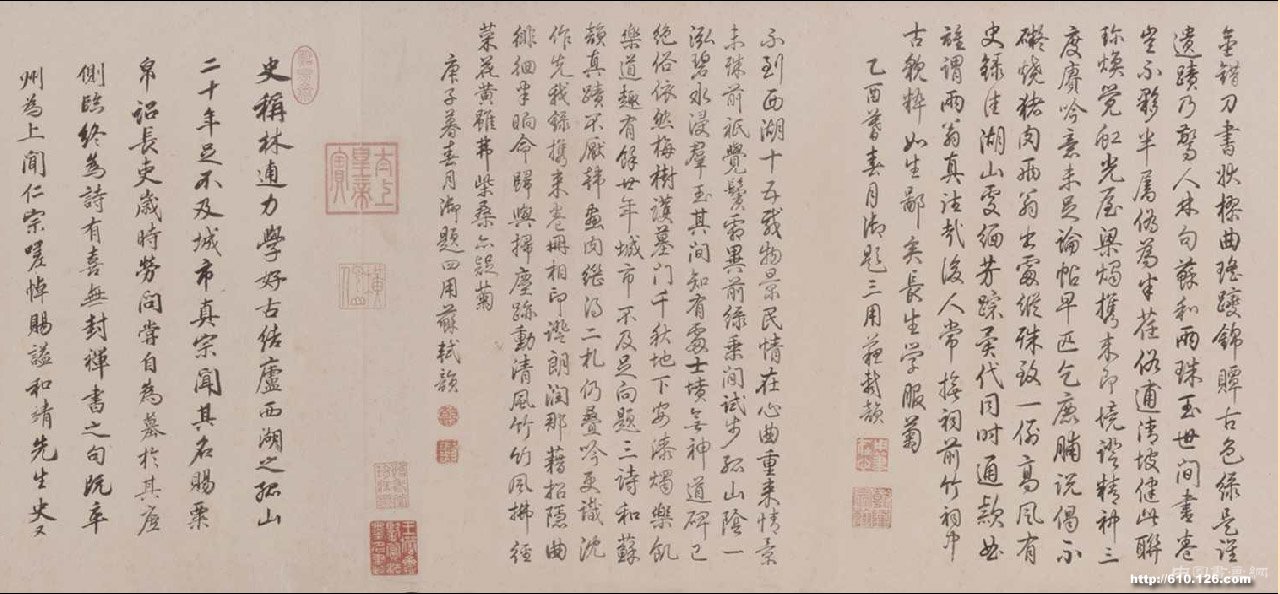 金錯刀書妙樛曲瑤躞錦贉古色綠是誰
遺蹟乃驚人林句蘇和兩珠玉世間書卷
豈不夥半屬偽為半荏俗逋清坡健此聯
珍煥覺虹光屋梁燭攜來即境證精神三
度賡吟意未足論帖早匹乞鹿脯說偈不
礙燒猪肉兩翁出處縱殊致一例高風有
史錄佳湖山處緬芳蹤異代同時通款曲
誰謂兩翁真詰哉後人常接祠前竹祠中
古貌粹如生鄙矣長生學服菊
乙酉暮春月御題三用蘇軾韻
不到西湖十五載物景民情在心曲重來情景
未殊前祇覺鬢霜異前綠乘閒試步孤山陰一
泓碧水浸羣玉其間知有處士墳無神道碑已
絕俗依然梅樹護墓門千秋地下安漆燭樂飢
樂道趣有餘廿年城市不及足向題三詩和蘇
韻真蹟不厭韓畫肉繼得二札仍疊吟更識沈
作先我錄攜來卷冊相印證朗潤那藉招隱曲
徘徊半晌命歸輿掃塵跡動清風竹竹風拂徑
菜花黃雖非柴桑亦疑菊
庚子暮春月御題四用蘇軾韻
太上皇帝
史稱林逋力學好古結廬西湖之孤山
二十年足不及城市真宗聞其名賜粟
帛詔長吏歲時勞問嘗自為墓於其廬
側臨終為詩有喜無封禪書之句既卒
州為上聞仁宗嗟悼賜謚和靖先生史又
http://610.126.com/